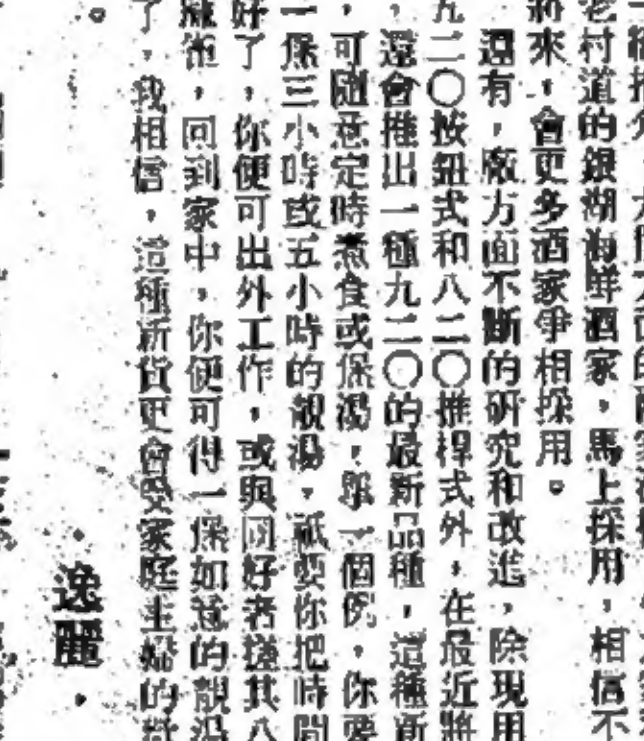 老村道的銀湖海鮮酒家，馬上採用，相信不
將來，會更多酒家爭相採用。
還有，廠方面不斷的研究和改進，除現用
九二〇按鈕式和八二〇推桿式外，在最近將
，還會推出一種九二〇的最新品種，這種新
，可隨意定時煮食或保湯，舉一個例，你要
一保三小時或五小時的靚湯，祇要你把時間
好了，你便可出外工作，或與同好者搓其八
魔術，回到家中，你便可得一保如意的靚湯
了，我相信，這種新貨更會受家庭主婦的歡
。
逸麗，